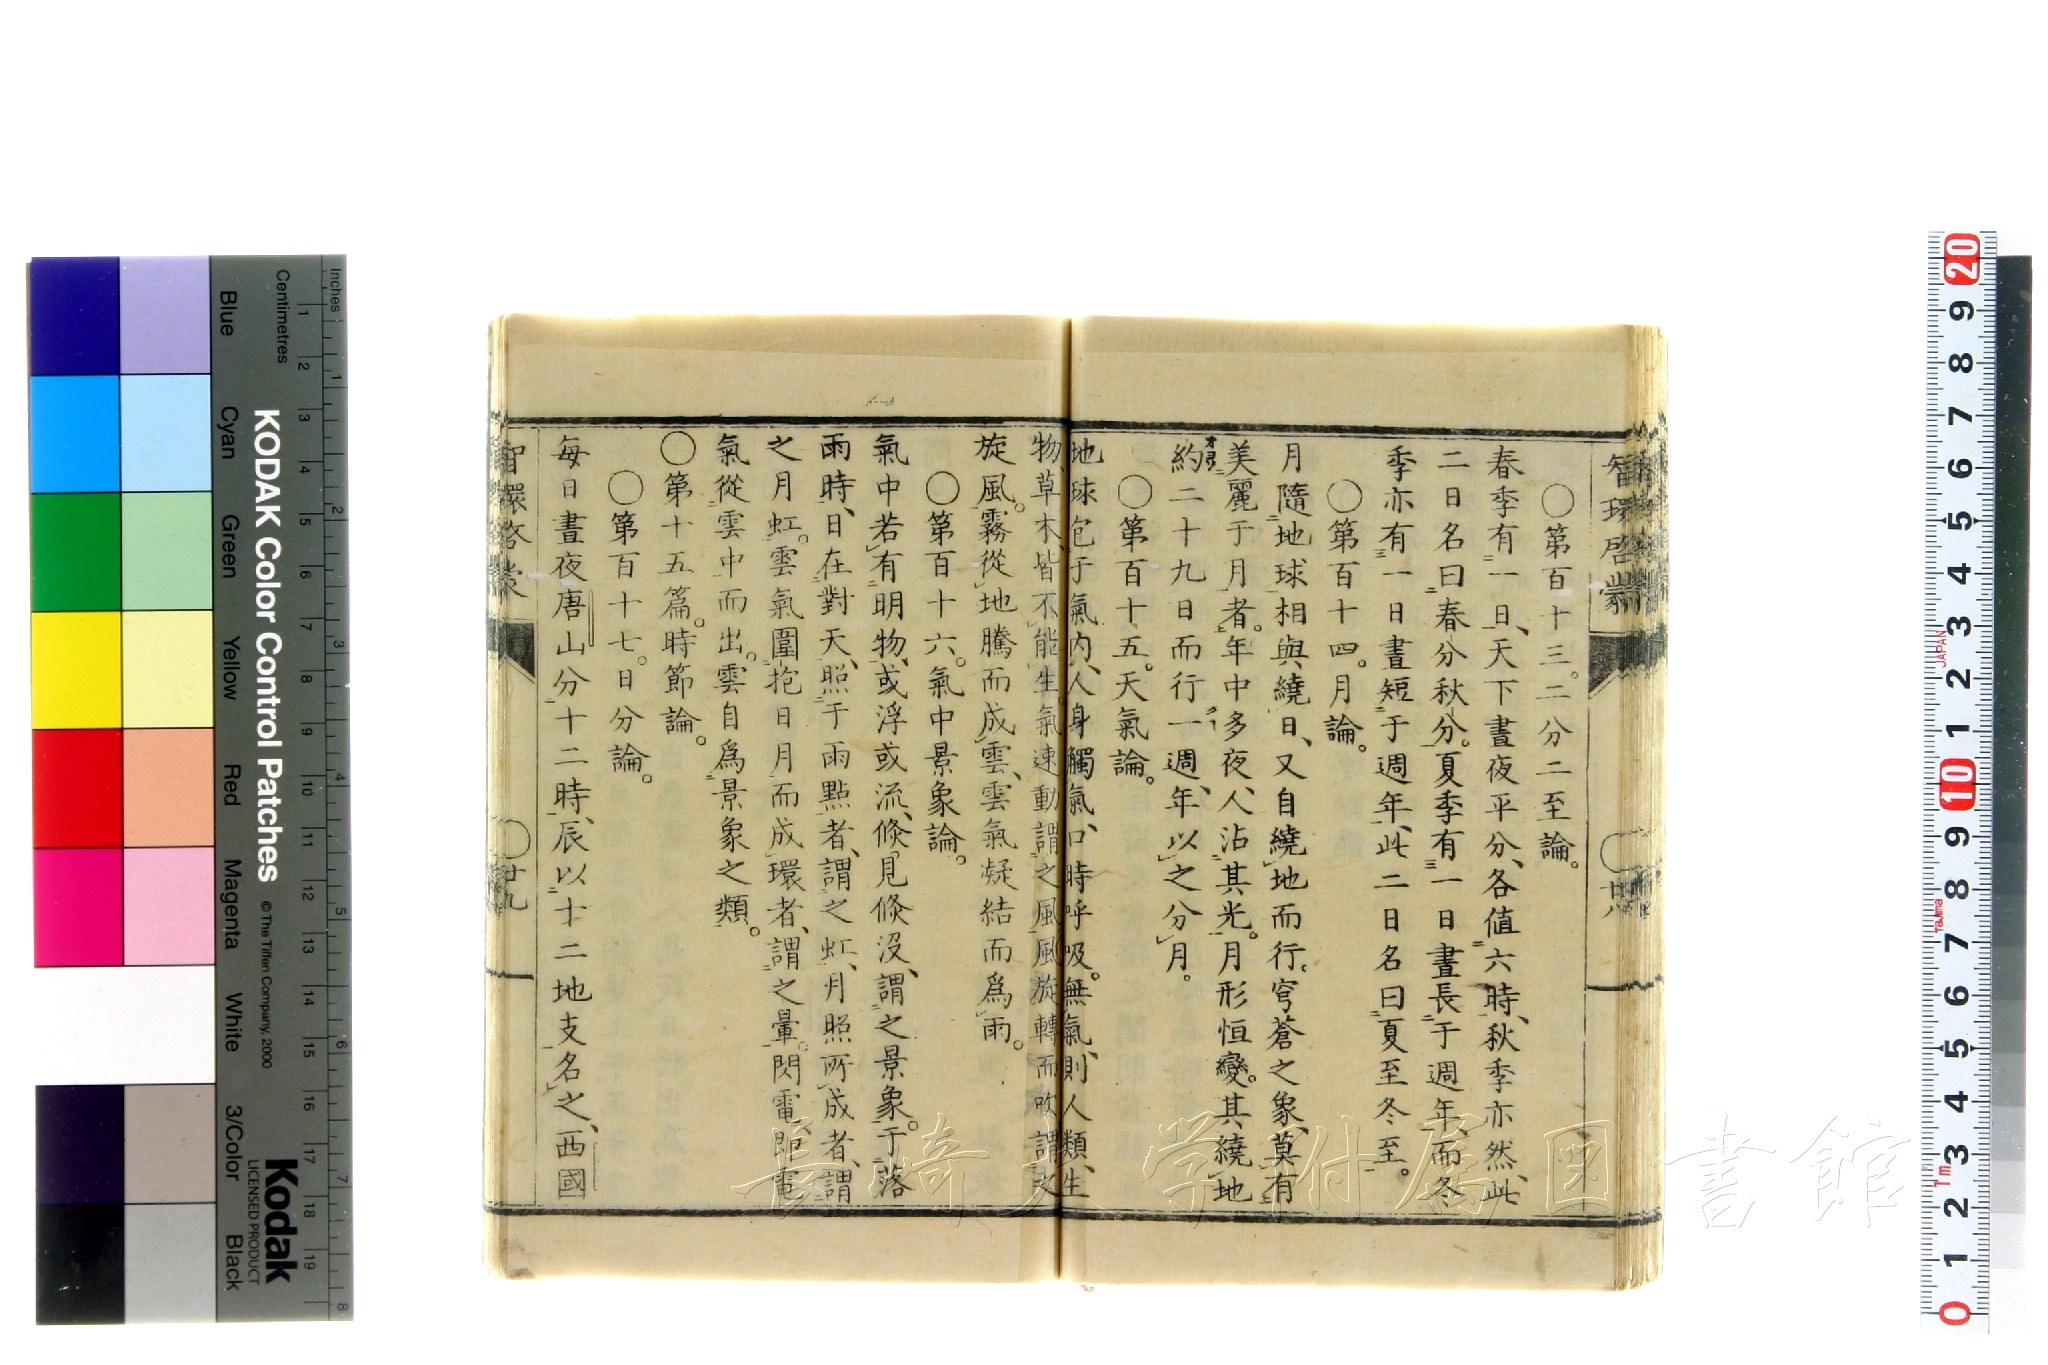 智環啓蒙
廿八
〇第百十三。二分二至論。
春季有一日、天下晝夜平分、各值六時、秋季亦然、此
二日名曰春分秋分。夏季有一日晝長于週年、而冬
季亦有一日晝短于週年、此二日名曰夏至冬至。
〇第百十四。月論。
月隨地球相與繞日、又自繞地而行。穹蒼之象、莫有
美麗于月者。年中多夜、人沾其光。月形恒變。其繞地
約二十九日而行一週、年以之分月。
〇第百十五。天氣論。
地球包于氣內、人身觸氣、口時呼吸。無氣、則人類、生
物、草木、皆不能生。氣速動謂之風。風旋轉而吹謂之
旋風。霧從地騰而成雲、雲氣凝結而爲雨。
〇第百十六。氣中景象論。
氣中若有明物、或浮或流、倏見倏沒、謂之景象。于落
雨時、日在對天、照于雨點者、謂之虹、月照所成者、謂
之月虹。雲氣圍抱日月而成環者、謂之暈。閃電、即電
氣從雲中而出。雲自爲景象之類。
〇第十五篇。時節論。
〇第百十七。日分論。
每日晝夜唐山分十二時、辰以十二地支名之、西國
智環啓蒙
廿九
KODAK Color Control Patches
© The Tiffen Company, 2000
Kodak
LICENSED PRODUCT
Inches
Centimetres
Blue
Cyan
Green
Yellow
Red
Magenta
White
3/Color
Black
1 2 3 4 5 6 7 8 9 10 11 12 13 14 15 16 17 18 19
1 2 3 4 5 6 7 8
20 9 8 7 6 5 4 3 2 1 10 9 8 7 6 5 4 3 2 1 0
JAPAN
Tajima
1m
長崎大学附属図書館